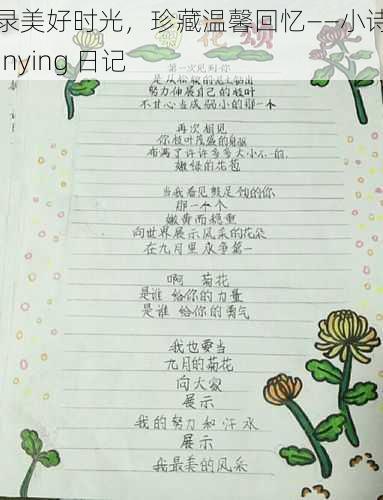 录美好时光，珍藏温馨回忆——小诗
nying 日记
花颂
第一次见到你
努力伸展自己的枝叶
不甘心当成弱小的那一个
再次相见
你枝叶茂盛的身躯
布满了许许多多大小不一的，
嫩绿的花苞
当我看见
那一个个
嫩黄而稳重
向世界展示风采的花朵
在九月里
啊 菊花
是谁 给你的力量
是谁 给你的勇气
我也要当
九月的菊花
向大家
展示
我的努力和汗水
展示
我最美的风采